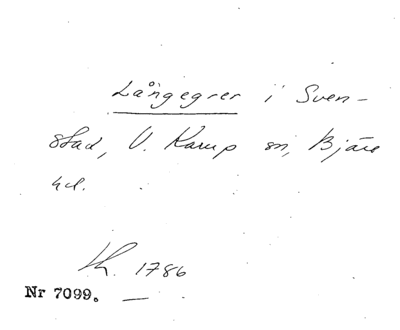 Långegrer i Sven-
stad, V. Karup sn, Bjäre
hd.
Kh. 1786
Nr 7099. —